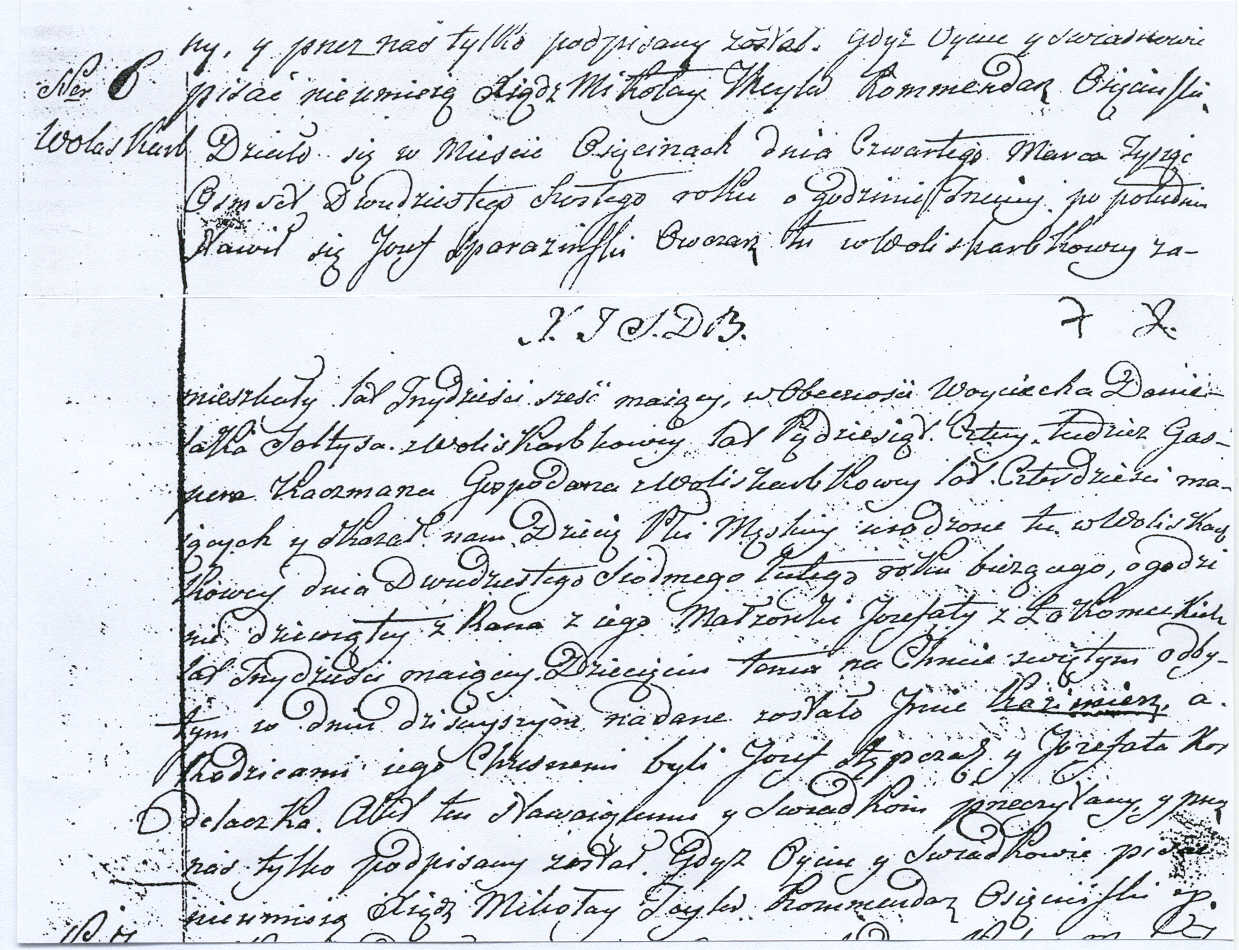 ny, y przez nas tylko podpisany został. Gdyż Oyciec y Swiadkowie
Ner 6 pisać nieumieią Xiądz Mikołay Kommendarz Osięcinski
Wolaskarb Działo się w Miescie Osięcinach dnia Czwartego Marca Tysiąc
Osmset Dwudziestego Szostego roku o godzinie Trzeciey po południu
Stawił się Jozef Szparazinski Owczarz tu w Woliskarbkowey za-
X. I S. D B. 7 8.
mieszkały lat Trzydzieści sześć maiący, w Obecności Woyciecha Danie-
laka Sołtysa z Woliskarbkowey lat Pędziesiąt Cztery, tudzież Gas-
pera Kaczmarza Gospodarza z Woliskarbkowey lat Czterdzieści ma-
iących y okazał nam Dziecię Płci Męskiey urodzone tu w Woliskarb
kowey dnia Dwudziestego Siodmego Lutego roku bieżącego, o godzi
nie dziewiątey z Rana z iego Małżonki Jozefaty z Łakomeckich
lat Trzydzieści maiącey. Dziecięciu temu na Chrzcie swiętym odby-
tym w dniu dzisieyszym nadane zostało Jmie Kazimierz, a
Rodzicami iego Chrzesnemi byli Jozef Stypczak y Jozefata Kor
delaczka. Akt ten Stawaiącemu y Swiadkom przeczytany, y przez
nas tylko podpisany został. Gdyż Oyciec y Swiadkowie pisać
nieumieią Xiądz Mikołay Kommendarz Osięcinski